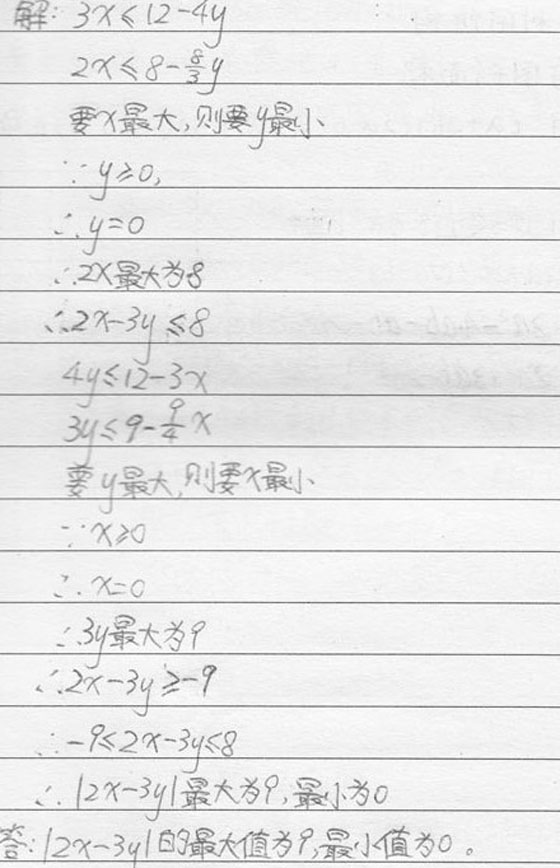 解: 3x≤12-4y
2x≤8-8/3y
要x最大,则要y最小
∵y≥0,
∴y=0
∴2x最大为8
∴2x-3y≤8
4y≤12-3x
3y≤9-9/4x
要y最大,则要x最小
∵x≥0
∴x=0
∴3y最大为9
∴2x-3y≥-9
∴-9≤2x-3y≤8
∴|2x-3y|最大为9,最小为0
答:|2x-3y|的最大值为9,最小值为0。